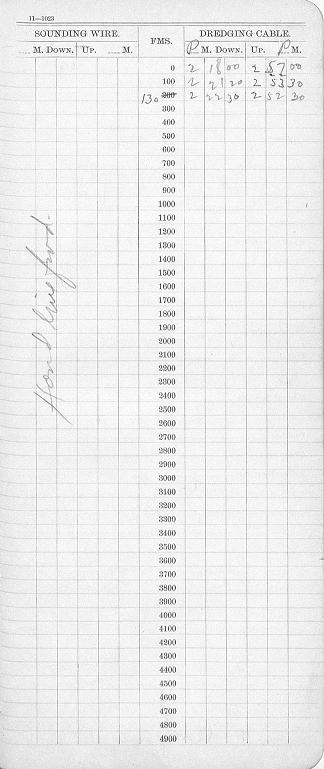 11—1023
SOUNDING WIRE. FMS. DREDGING CABLE.
M. DOWN. UP. M. P. M. DOWN. UP. P. M.
0 2 18 00 2 57 00
100 2 21 20 2 53 30
130 200 2 22 30 2 52 30
300
400
500
600
700
800
900
1000
1100
1200
1300
1400
1500
1600
1700
1800
1900
2000
2100
2200
2300
2400
2500
2600
2700
2800
2900
3000
3100
3200
3300
3400
3500
3600
3700
3800
3900
4000
4100
4200
4300
4400
4500
4600
4700
4800
4900
Hand